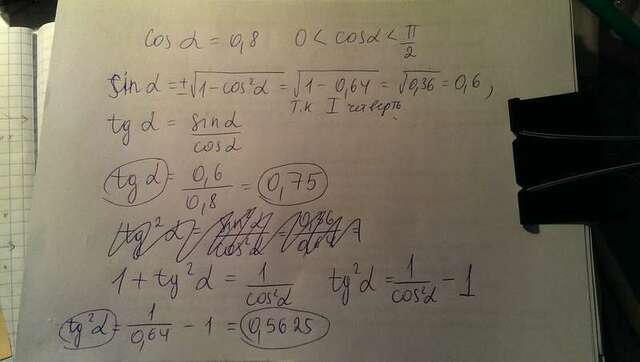 cos α = 0,8 0 < cos α < π/2
sin α = ±√(1 − cos²α) = √(1 − 0,64) = √0,36 = 0,6,
т.к I четверть
tg α = sin α / cos α
tg α = 0,6 / 0,8 = 0,75
tg²α = sin²α / cos²α = 0,36
1 + tg²α = 1 / cos²α tg²α = 1 / cos²α − 1
tg²α = 1 / 0,64 − 1 = 0,5625